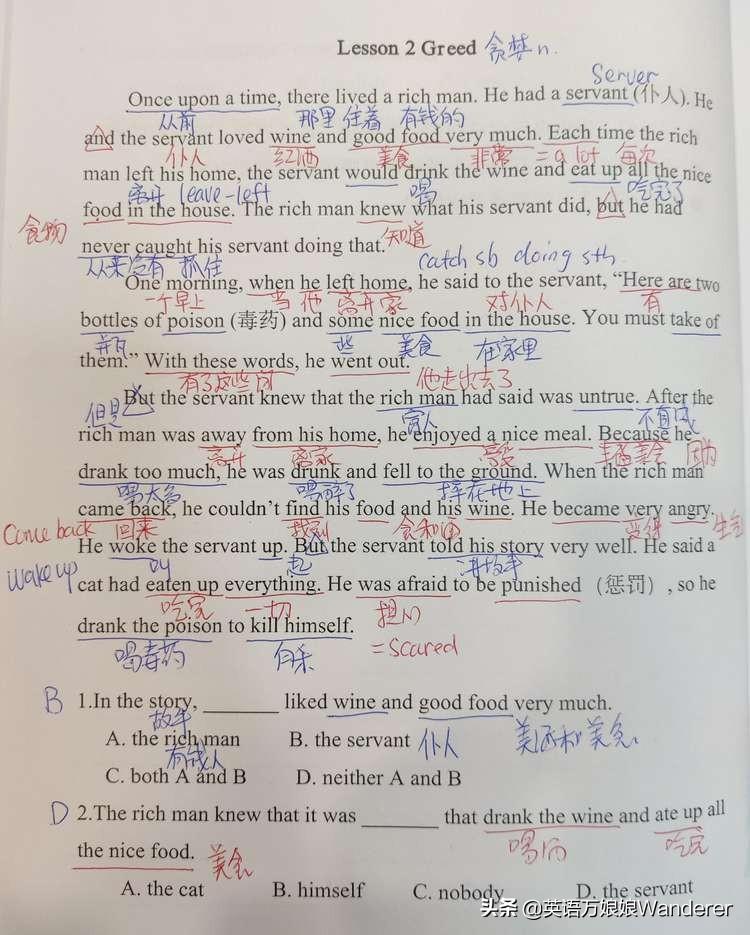 Lesson 2 Greed 贪婪 n.
Server
Once upon a time, there lived a rich man. He had a servant (仆人). He
从前 那里 住着 有钱的
and the servant loved wine and good food very much. Each time the rich
仆人 红酒 美食 非常 = a lot 每次
man left his home, the servant would drink the wine and eat up all the nice
离开 leave-left 喝 吃完了
food in the house. The rich man knew what his servant did, but he had
食物 知道
never caught his servant doing that.
从来没有 抓住 catch sb doing sth
One morning, when he left home, he said to the servant, “Here are two
一个早上 当 他 离开家 对仆人 有
bottles of poison (毒药) and some nice food in the house. You must take of
瓶 些 美食 在家里
them.” With these words, he went out.
有了这些词 他走出去了
But the servant knew that the rich man had said was untrue. After the
但是 富人 不真诚
rich man was away from his home, he enjoyed a nice meal. Because he
离开 离家 享受 丰盛美食 因为
drank too much, he was drunk and fell to the ground. When the rich man
喝太多 喝醉了 摔在地上
came back, he couldn’t find his food and his wine. He became very angry.
Come back 回来 找到 食和酒 变得 生气
He woke the servant up. But the servant told his story very well. He said a
wake up 起 讲故事
cat had eaten up everything. He was afraid to be punished （惩罚）, so he
吃完 一切 担心
drank the poison to kill himself.
喝毒药 自杀 = scared
B 1.In the story, _______ liked wine and good food very much.
故事
A. the rich man B. the servant 仆人 美酒和美食
有钱人
C. both A and B D. neither A and B
D 2.The rich man knew that it was _______ that drank the wine and ate up all
喝酒 吃完
the nice food. 美食
A. the cat B. himself C. nobody D. the servant
头条 @英语万娘娘Wanderer